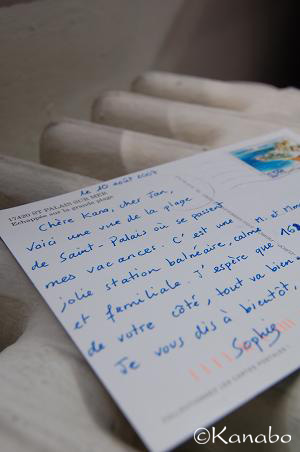 17420 ST PALAIS SUR MER
Echappée sur la grande plage
le 10 août 2007
Chère Kana, cher Jan,
Voici une vue de la plage
de Saint-Palais où se passent
mes vacances. C'est une
jolie station balnéaire, calme
et familiale. J'espère que
de votre côté, tout va bien.
Je vous dis à bientôt,
Sophie
M. et Mme
COLLECTIONNEZ LES CARTES POSTALES
©Kanabo